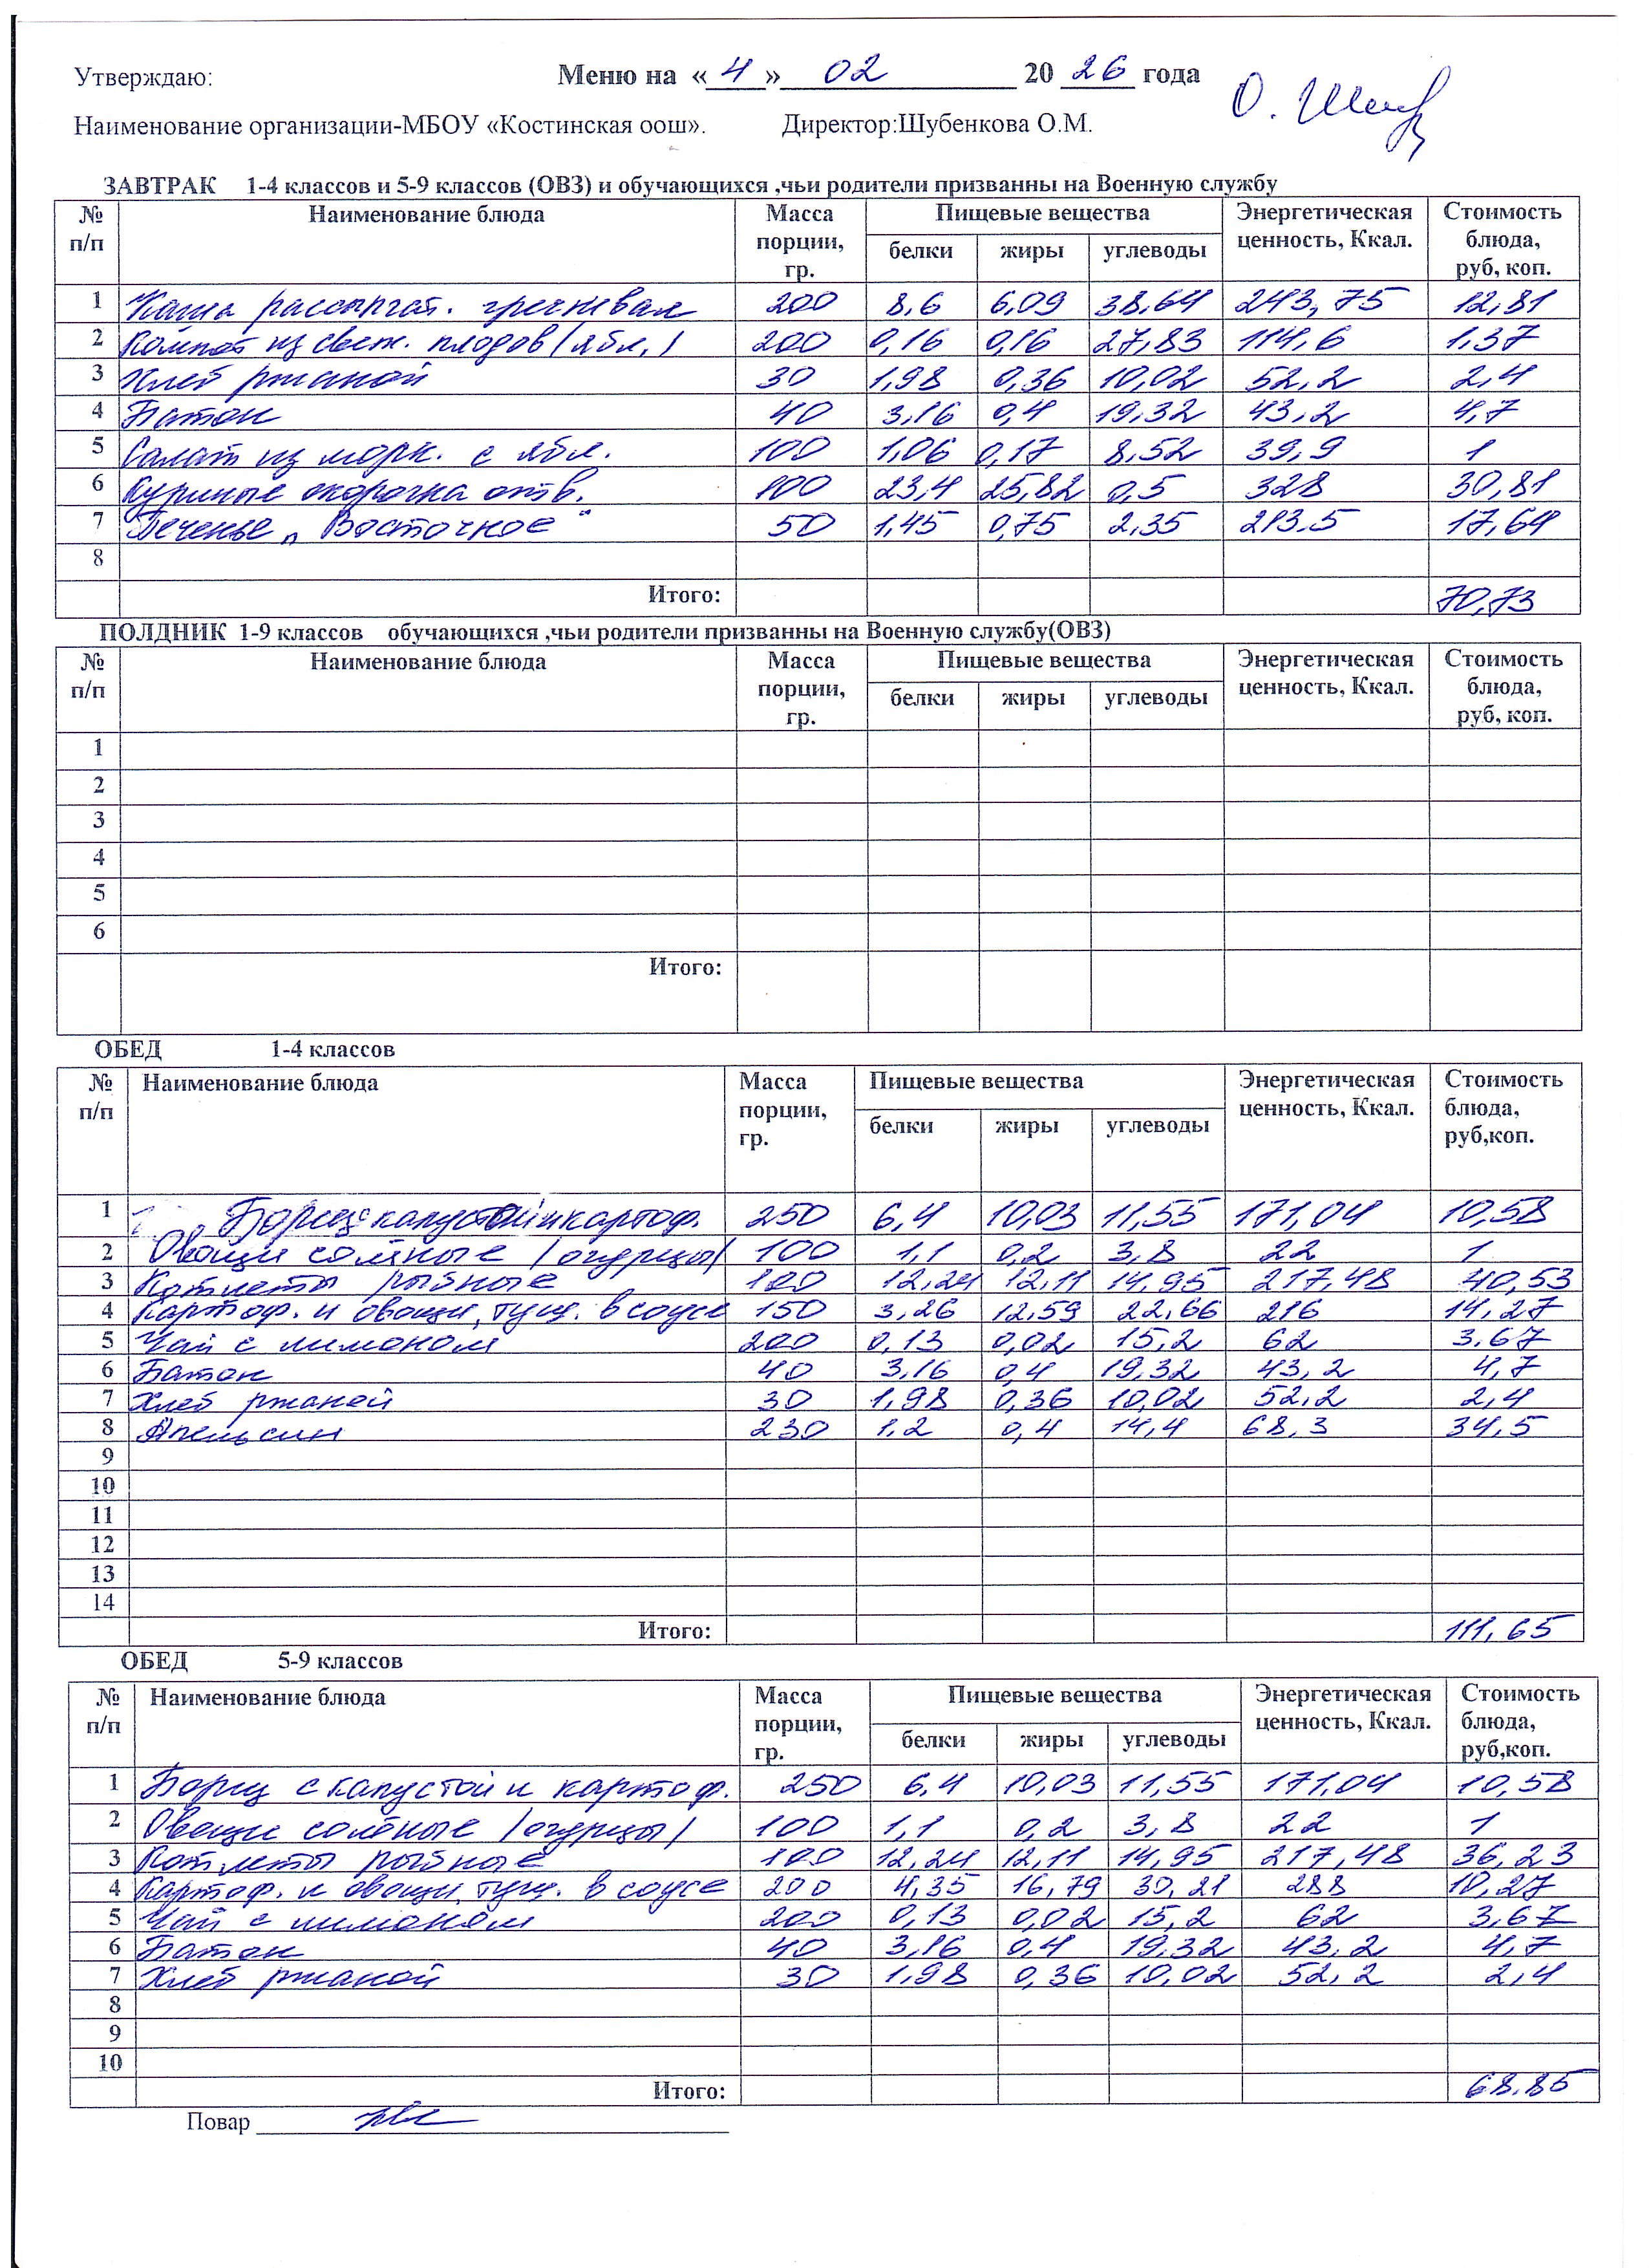 Утверждаю: Меню на «4» 02 2026 года
Наименование организации-МБОУ «Костинская оош». Директор:Шубенкова О.М.
ЗАВТРАК 1-4 классов и 5-9 классов (ОВЗ) и обучающихся ,чьи родители призванны на Военную службу
№ п/п Наименование блюда Масса порции, гр. Пищевые вещества Энергетическая ценность, Ккал. Стоимость блюда, руб, коп.
белки жиры углеводы
1 Каша рассыпчат. гречневая 200 8,6 6,09 38,64 243,75 12,81
2 Компот из свеж. плодов (ябл.) 200 0,16 0,16 27,83 114,6 1,37
3 Хлеб ржаной 30 1,98 0,36 10,02 52,2 2,4
4 Батон 40 3,16 0,4 19,32 43,2 4,7
5 Салат из морк. с ябл. 100 1,06 0,17 8,52 39,9 1
6 Куриные окорочка отв. 100 23,4 25,82 0,5 328 30,81
7 Печенье „Восточное" 50 1,45 0,75 2,35 213.5 17,64
8
Итого: 70,73
ПОЛДНИК 1-9 классов обучающихся ,чьи родители призванны на Военную службу(ОВЗ)
№ п/п Наименование блюда Масса порции, гр. Пищевые вещества Энергетическая ценность, Ккал. Стоимость блюда, руб, коп.
белки жиры углеводы
1
2
3
4
5
6
Итого:
ОБЕД 1-4 классов
№ п/п Наименование блюда Масса порции, гр. Пищевые вещества Энергетическая ценность, Ккал. Стоимость блюда, руб,коп.
белки жиры углеводы
1 Борщ с капустой и картоф. 250 6,4 10,03 11,55 171,04 10,58
2 Овощи солёные (огурцы) 100 1,1 0,2 3,8 22 1
3 Котлеты рыбные 100 12,24 12,11 14,95 217,48 40,53
4 Картоф. и овощи, туш. в соусе 150 3,26 12,59 22,66 216 14,27
5 Чай с лимоном 200 0,13 0,02 15,2 62 3,67
6 Батон 40 3,16 0,4 19,32 43,2 4,7
7 Хлеб ржаной 30 1,98 0,36 10,02 52,2 2,4
8 Апельсин 230 1,2 0,4 14,4 68,3 34,5
9
10
11
12
13
14
Итого: 111,65
ОБЕД 5-9 классов
№ п/п Наименование блюда Масса порции, гр. Пищевые вещества Энергетическая ценность, Ккал. Стоимость блюда, руб,коп.
белки жиры углеводы
1 Борщ с капустой и картоф. 250 6,4 10,03 11,55 171,04 10,58
2 Овощи солёные (огурцы) 100 1,1 0,2 3,8 22 1
3 Котлеты рыбные 100 12,24 12,11 14,95 217,48 36,23
4 Картоф. и овощи, туш. в соусе 200 4,35 16,79 30,21 288 10,27
5 Чай с лимоном 200 0,13 0,02 15,2 62 3,67
6 Батон 40 3,16 0,4 19,32 43,2 4,7
7 Хлеб ржаной 30 1,98 0,36 10,02 52,2 2,4
8
9
10
Итого: 68.85
Повар